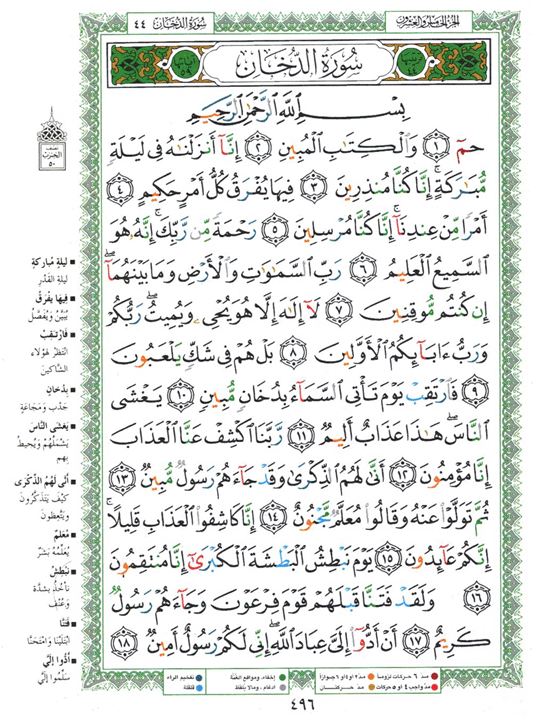 سُورَةُ الدُّخَانِ ٤٤
الجزء الخامس والعشرون
سُورَةُ الدُّخَانِ
بِسْمِ اللَّهِ الرَّحْمَٰنِ الرَّحِيمِ
حمٓ ١ وَالْكِتَابِ الْمُبِينِ ٢ إِنَّآ أَنزَلْنَاهُ فِي لَيْلَةٍ
مُّبَارَكَةٍ ۚ إِنَّا كُنَّا مُنذِرِينَ ٣ فِيهَا يُفْرَقُ كُلُّ أَمْرٍ حَكِيمٍ ٤
أَمْرًا مِّنْ عِندِنَآ ۚ إِنَّا كُنَّا مُرْسِلِينَ ٥ رَحْمَةً مِّن رَّبِّكَ ۚ إِنَّهُ هُوَ
السَّمِيعُ الْعَلِيمُ ٦ رَبِّ السَّمَٰوَٰتِ وَالْأَرْضِ وَمَا بَيْنَهُمَآ ۖ
إِن كُنتُم مُّوقِنِينَ ٧ لَآ إِلَٰهَ إِلَّا هُوَ يُحْيِي وَيُمِيتُ ۖ رَبُّكُمْ
وَرَبُّ ءَابَآئِكُمُ الْأَوَّلِينَ ٨ بَلْ هُمْ فِي شَكٍّ يَلْعَبُونَ
٩ فَارْتَقِبْ يَوْمَ تَأْتِي السَّمَآءُ بِدُخَانٍ مُّبِينٍ ١٠ يَغْشَى
النَّاسَ ۖ هَٰذَا عَذَابٌ أَلِيمٌ ١١ رَّبَّنَا اكْشِفْ عَنَّا الْعَذَابَ
إِنَّا مُؤْمِنُونَ ١٢ أَنَّىٰ لَهُمُ الذِّكْرَىٰ وَقَدْ جَآءَهُمْ رَسُولٌ مُّبِينٌ ١٣
ثُمَّ تَوَلَّوْا عَنْهُ وَقَالُوا مُعَلَّمٌ مَّجْنُونٌ ١٤ إِنَّا كَاشِفُوا الْعَذَابِ قَلِيلًا ۚ
إِنَّكُمْ عَآئِدُونَ ١٥ يَوْمَ نَبْطِشُ الْبَطْشَةَ الْكُبْرَىٰٓ إِنَّا مُنتَقِمُونَ
١٦ وَلَقَدْ فَتَنَّا قَبْلَهُمْ قَوْمَ فِرْعَوْنَ وَجَآءَهُمْ رَسُولٌ
كَرِيمٌ ١٧ أَنْ أَدُّوٓا إِلَيَّ عِبَادَ اللَّهِ ۖ إِنِّي لَكُمْ رَسُولٌ أَمِينٌ ١٨
الحزب
٥٠
لَيْلَةٍ مُبَارَكَةٍ
لَيْلَةِ الْقَدْرِ
فِيهَا يُفْرَقُ
يُبَيَّنُ وَيُفَصَّلُ
فَارْتَقِبْ
انْتَظِرْ هَؤُلَاءِ
الشَّاكِّينَ
بِدُخَانٍ
جَدْبٍ وَمَجَاعَةٍ
يَغْشَى النَّاسَ
يَشْمَلُهُمْ وَيُحِيطُ
بِهِم
أَنَّى لَهُمُ الذِّكْرَى
كَيْفَ يَتَذَكَّرُونَ
وَيَتَّعِظُونَ
مُعَلَّمٌ
يُعَلِّمُهُ بَشَرٌ
نَبْطِشُ
نَأْخُذُ بِشِدَّةٍ
وَعُنْفٍ
فَتَنَّا
ابْتَلَيْنَا وَامْتَحَنَّا
أَدُّوا إِلَيَّ
سَلِّمُوا إِلَيَّ
مدّ ٦ حركات لزوماً
مدّ ٢ أو ٤ أو ٦ جوازاً
إخفاء، ومواقع الغنّة
تفخيم الراء
مدّ واجب ٤ أو ٥ حركات
مدّ حركتان
ادغام، ومالا يلفظ
قلقلة
٤٩٦